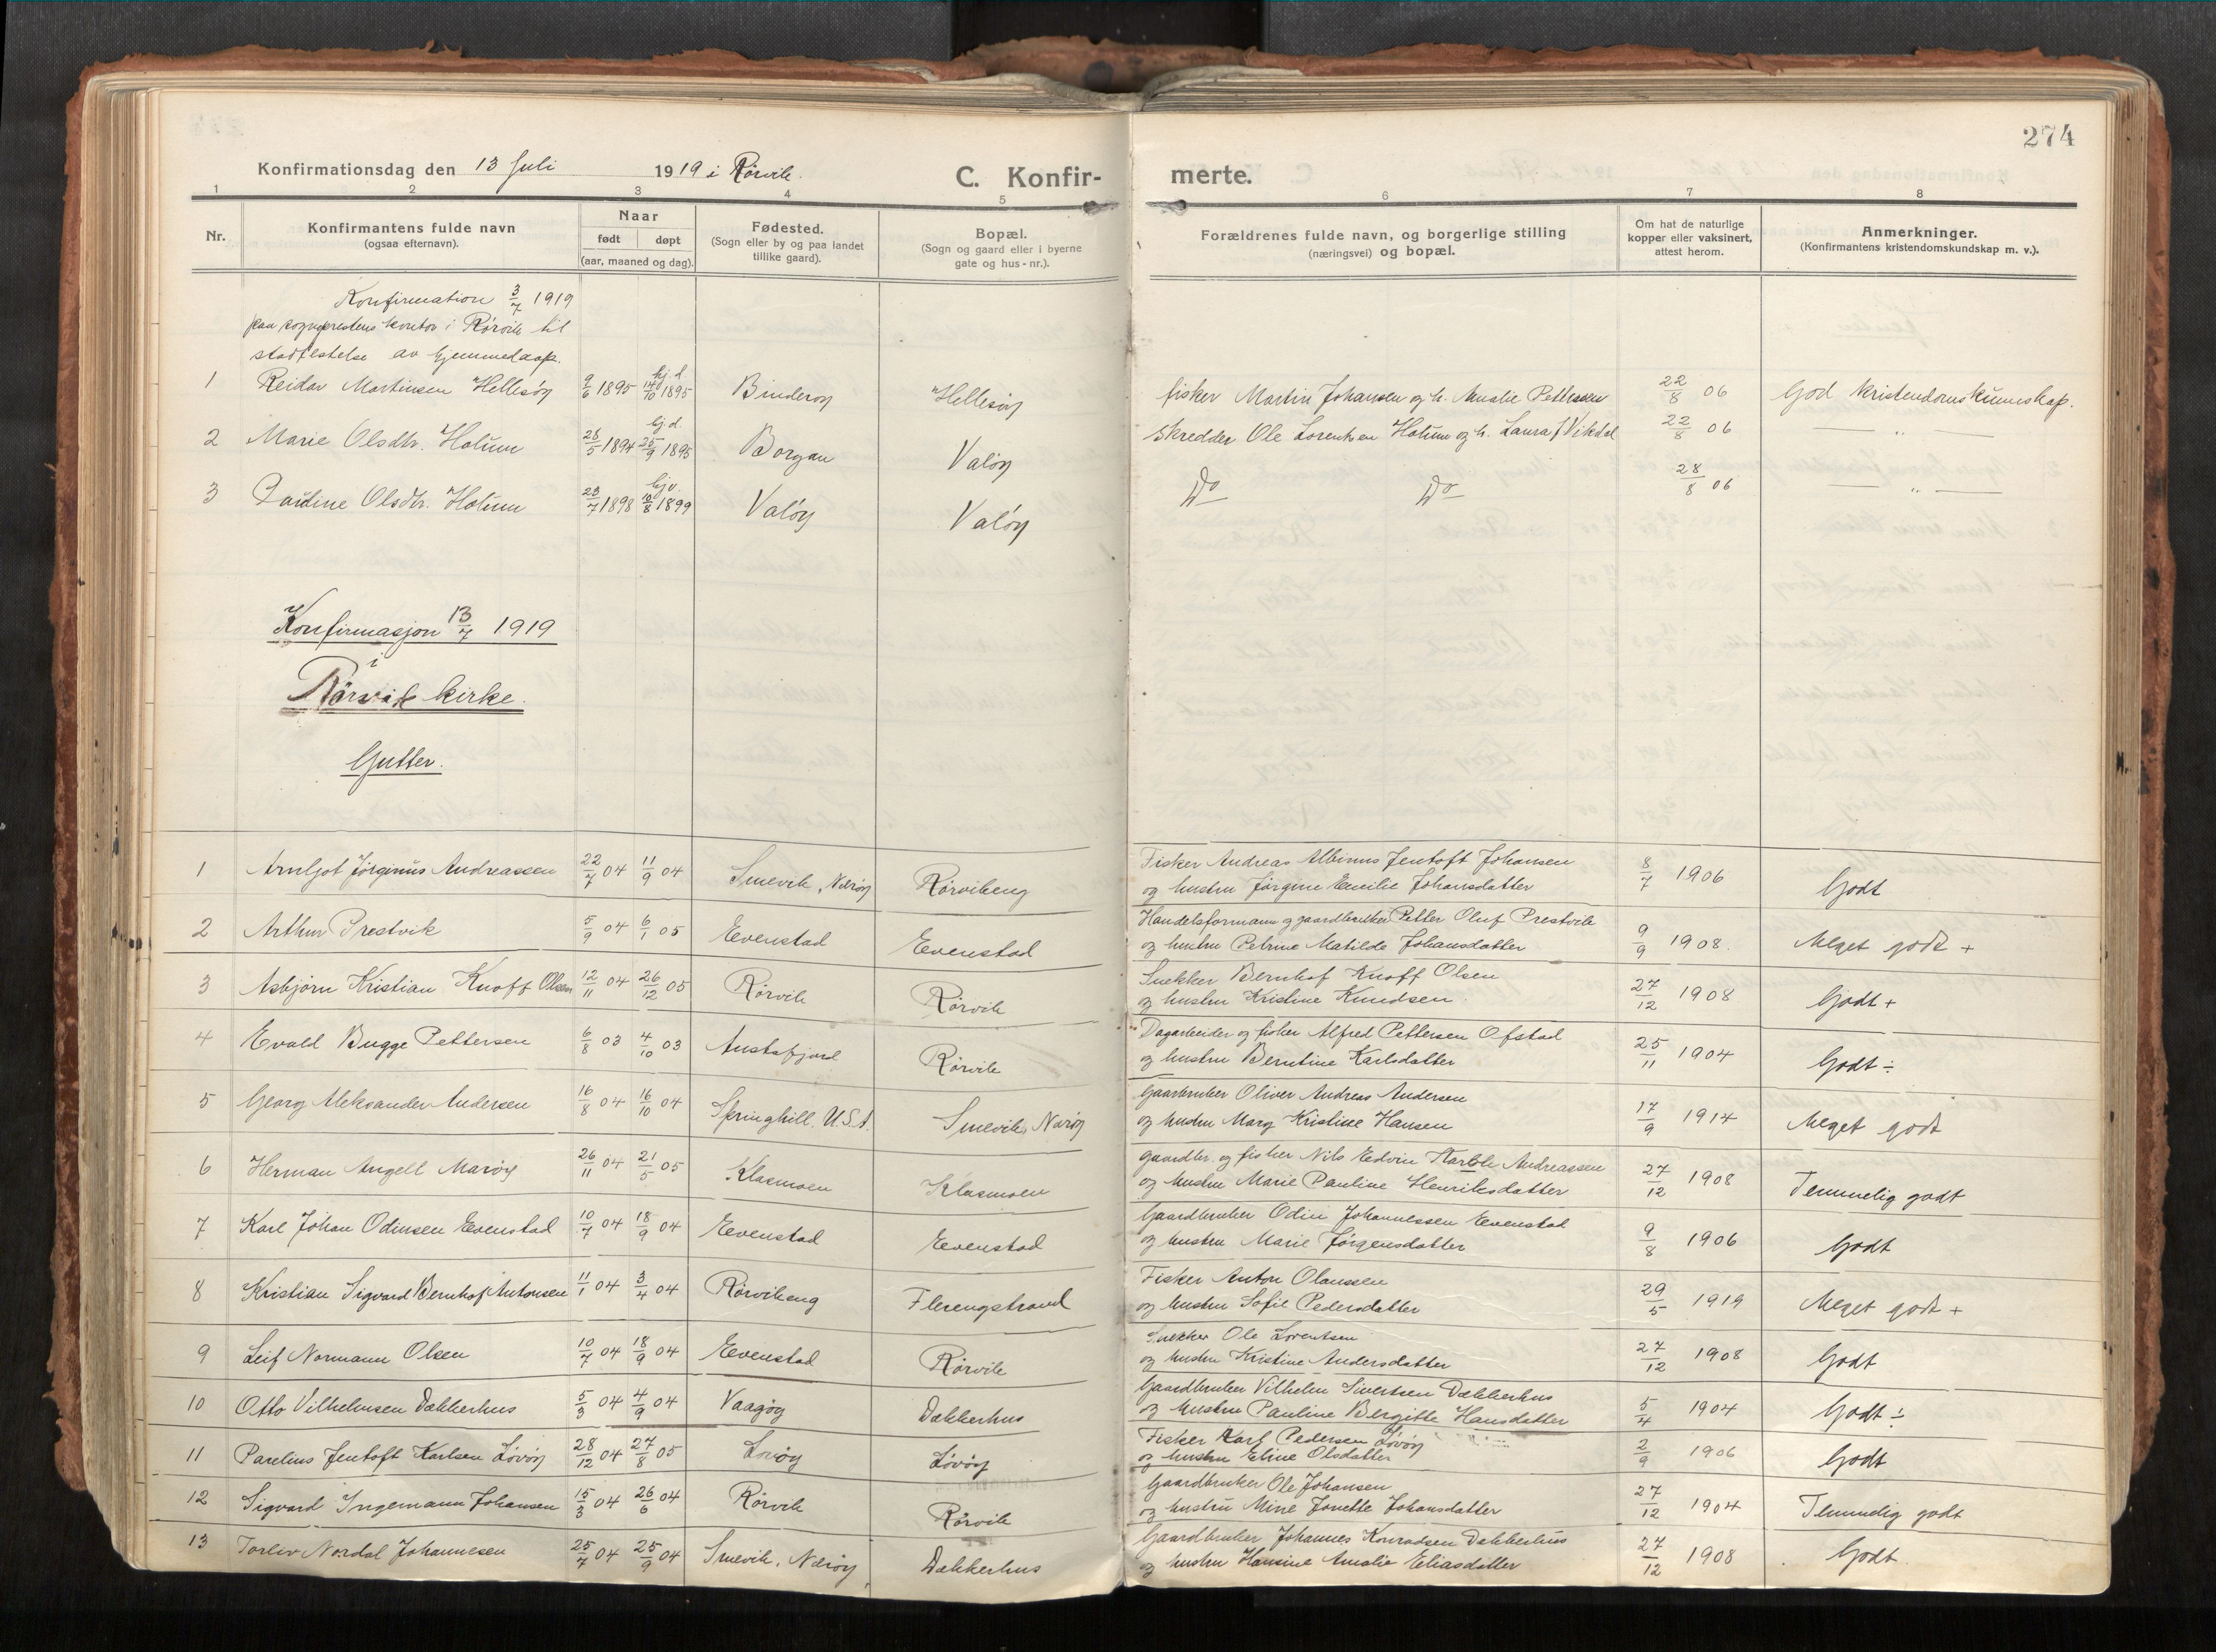 274
Konfirmationsdag den 13 Juli 1919 i Rørvik. C. Konfir- merte.
1 2 3 4 5 6 7 8
Nr. Konfirmantens fulde navn (ogsaa efternavn). Naar født døpt (aar, maaned og dag). Fødested. (Sogn eller by og paa landet tillike gaard). Bopæl. (Sogn og gaard eller i byerne gate og hus-nr.). Forældrenes fulde navn, og borgerlige stilling (næringsvei) og bopæl. Om hat de naturlige kopper eller vaksinert, attest herom. Anmerkninger. (Konfirmantens kristendomskundskap m. v.).
Konfirmation 3/7 1919
paa sogneprestens kontor i Rörvik til
stadfestelse av hjemmedaap.
1 Reidar Martinsen Hellesöy 9/6 1895 hj.d. 14/10 1895 Binderöy Hellesöy fisker Martin Johansen og h. Amalie Pettersen 22/8 06 God kristendomskunnskap.
2 Marie Olsdtr. Holum 28/5 1894 hj.d. 25/9 1895 Borgan Valöy Skredder Ole Lorentsen Holum og h. Laura f. Vikdal 22/8 06 — " —
3 Olsdtr. Holum 23/7 1898 10/8 1899 Valöy Valöy Do Do 28/8 06 — " —
Konfirmasjon 13/7 1919
i
Rörvik kirke.
Gutter.
1 Arnljot Jörginus Andreassen 22/7 04 11/9 04 Smevik, Næröy Rörvikeng Fisker Andreas Albinus Jentoft Johansen
og hustru Jörgine Emilie Johansdatter 8/7 1906 Godt
2 Arthur Prestvik 5/9 04 6/1 05 Evenstad Evenstad Handelsformann og gaardbruker Petter Oluf Prestvik
og hustru Petrine Matilde Johansdatter 9/9 1908. Meget godt +
3 Asbjörn Kristian Knoff Olsen 12/11 04 26/12 05 Rörvik Rörvik Snekker Bernhof Knoff Olsen
og hustru Kristine Knudsen. 27/12 1908 Godt +
4 Evald Bugge Pettersen 6/8 03 4/10 03 Austafjord Rörvik Dagarbeider og fisker Alfred Pettersen Ofstad
og hustru Berntine Karlsdatter 25/11 1904 Godt ÷
5 Georg Aleksander Andersen 16/8 04 16/10 04 Springhill, U.S.A. Smevik, Næröy Gaarbruker Oliver Andreas Andersen
og hustru Mary Kristine Hansen 17/9 1914 Meget godt
6 Herman Angell Maröy 26/11 04 21/5 05 Klasmoen Klasmoen gaardbr. og fisker Nils Edvin Andreassen
og hustru Marie Pauline Henriksdatter 27/12 1908 Temmelig godt
7 Karl Johan Odinsen Evenstad 10/7 04 18/9 04 Evenstad Evenstad Gaardbruker Odin Johannessen Evenstad
og hustru Marie Jörgensdatter 9/8 1906 Godt
8 Kristian Sigvard Bernhof Antonsen 11/1 04 3/4 04 Rörvikeng Flerengstrand Fisker Anton Olaussen
og hustru Sofie Pedersdatter 29/5 1919 Meget godt +
9 Leif Normann Olsen 10/7 04 18/9 04 Evenstad Rörvik Snekker Ole Lorentsen
og hustru Kristine Andersdatter 27/12 1908 Godt
10 Otto Vilhelmsen Dækkerhus 5/3 04 4/9 04 Vaagöy Dækkerhus Gaardbruker Vilhelm Sivertsen Dækkerhus
og hustru Pauline Bergitte Hansdatter 5/4 1904 Godt ÷
11 Parelius Jentoft Karlsen Lövöy 28/12 04 27/8 05 Lovöy Lövöy Fisker Karl Pedersen Lövöy
og hustru Eline Olsdatter 2/9 1906 Godt
12 Sigvard Ingemann Johansen 15/3 04 26/6 04 Rörvik Rörvik Gaardbruker Ole Johansen
og hustru Mine Jonette Johansdatter 27/12 1904 Temmelig godt
13 Torleiv Nordal Johannesen 25/7 04 25/9 04 Smevik, Næröy Dækkerhus Gaardbruker Johannes Konradsen Dækkerhus
og hustru Hansine Amalie Eliasdatter 27/12 1908 Godt.